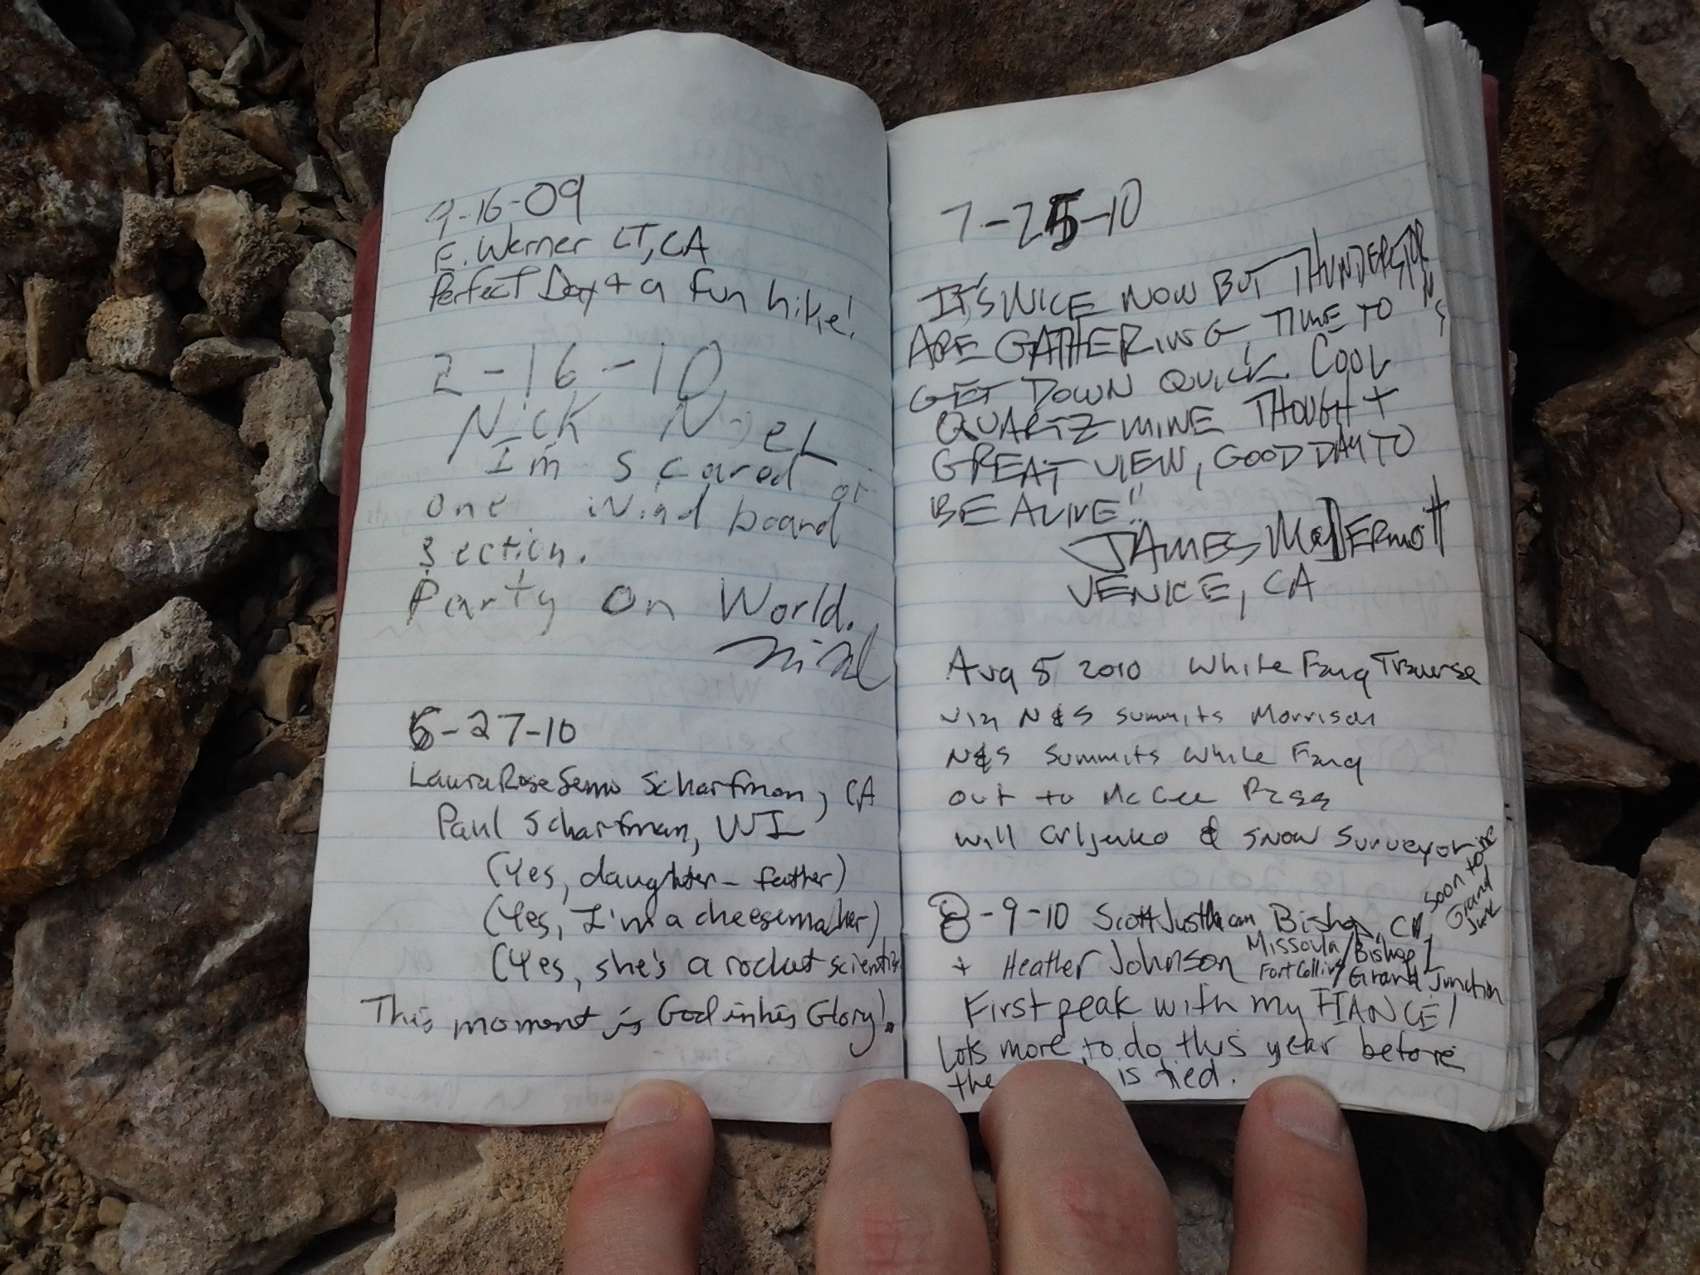 9-16-09
E. Werner LT, CA
Perfect Day + a fun hike!
2-16-10
Nick
I'm scared of
one wind board
section.
Party on World.
6-27-10
LauraRose Semo Scharfman, CA
Paul Scharfman, WI
(Yes, daughter - father)
(Yes, I'm a cheesemaker)
(Yes, she's a rocket scientist
This moment is God in his Glory!
7-25-10
IT'S NICE NOW BUT THUNDERSTORMS
ARE GATHERING, TIME TO
GET DOWN QUICK. COOL
QUARTZ MINE THOUGH +
GREAT VIEW, GOOD DAY TO
BE ALIVE!!
JAMES McDERmott
VENICE, CA
Aug 5 2010 White Fang Traverse
via N&S summits Morrison
N&S summits White Fang
out to McGee Pass
Will & Snow Surveyor
8-9-10 Scott Bishop, CA soon to be Grand Junc
+ Heather Johnson Missoula/Bishop/
Fort Collins/Grand Junction
First peak with my FIANCE!
Lots more to do this year before
the is tied.